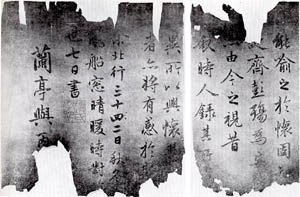 能喻之於懷固
齊彭殤為妄
由今之視昔
敘時人錄其所
異所以興懷
者亦將有感於
北行三十二日秋
船窗晴暖時對
七日書
蘭亭與丙